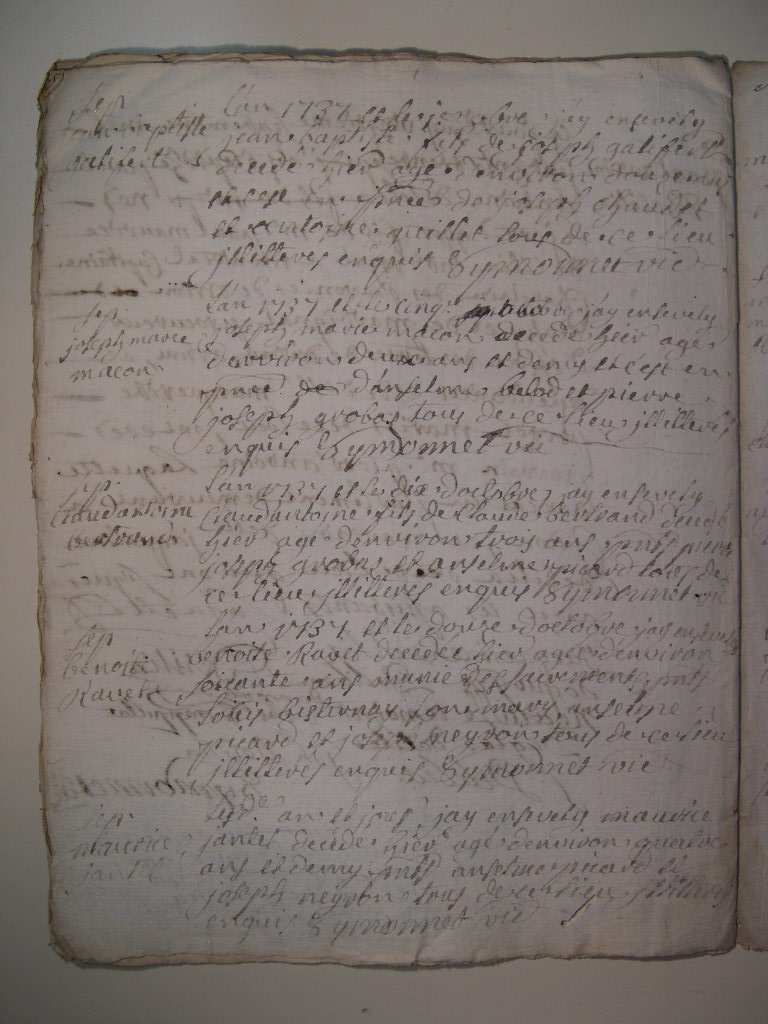 sep
jean baptiste
L'an 1737 et le octobre jay ensevely
jean baptiste fils de joseph
decede hier age denviron
et cest en pnce de joseph chaudet
et antoine tous de ce lieu
jllitterés enquis Symonnet vic
sep
joseph marie
macon
L'an 1737 et le cinq octobre jay ensevely
joseph marie macon decede hier agé
denviron deux ans et demy et cest en
pnce de d'anselme et pierre
joseph grobas tous de ce lieu jllitterés
enquis Symonnet vic
sep
claudantoine
bertrand
L'an 1737 et le dix doctobre jay ensevely
claudantoine fils de claude bertrand decede
hier agé denviron trois ans pnts pierre
joseph grobas et anselme picard tous de
ce lieu jllitterés enquis Symonnet vic
sep
benoite
Ravet
L'an 1737 et le douze doctobre jay ensevely
benoite Ravet decedee hier agee denviron
soixante ans munie des sacrements pnts
louis son mary anselme
picard et joseph neyvon tous de ce lieu
jllitterés enquis Symonnet vic
sep
maurice
jantet
an et jour jay ensevely maurice
jantet decede hier agé denviron quatre
ans et demy pnts anselme picard et
joseph neyvon tous de ce lieu jllitterés
enquis Symonnet vic